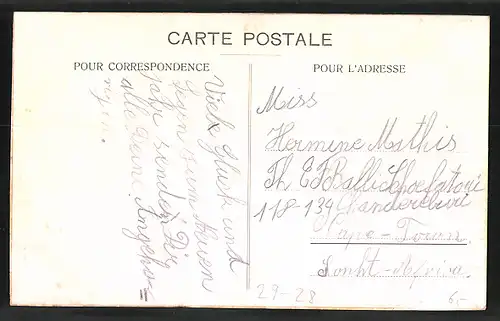 CARTE POSTALE
POUR CORRESPONDENCE
Viele Glück und
Segen zum Neuen
Jahr senden Dir
alle Deine Angehör=
igen.
POUR L'ADRESSE
Miss
Hermine Mathis
Th
118-139
Cape-Town
South-Africa.
29-28
6,-